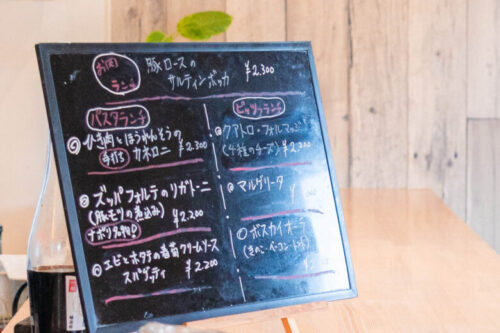 お肉ランチ
豚ロースの
サルティンボッカ ¥2,300
パスタランチ
ひき肉とほうれんそうの
手打ち カネロニ ¥2,300
ズッパフォルテのリガトーニ
(豚モツの煮込み)
¥2,200
エビとホタテの春菊クリームソース
スパゲッティ ¥2,200
ピッツァランチ
クアトロ・フォルマッジ
(4種のチーズ) ¥2,300
マルゲリータ
¥
ボスカイオーラ
(きのこ・ベーコン
¥